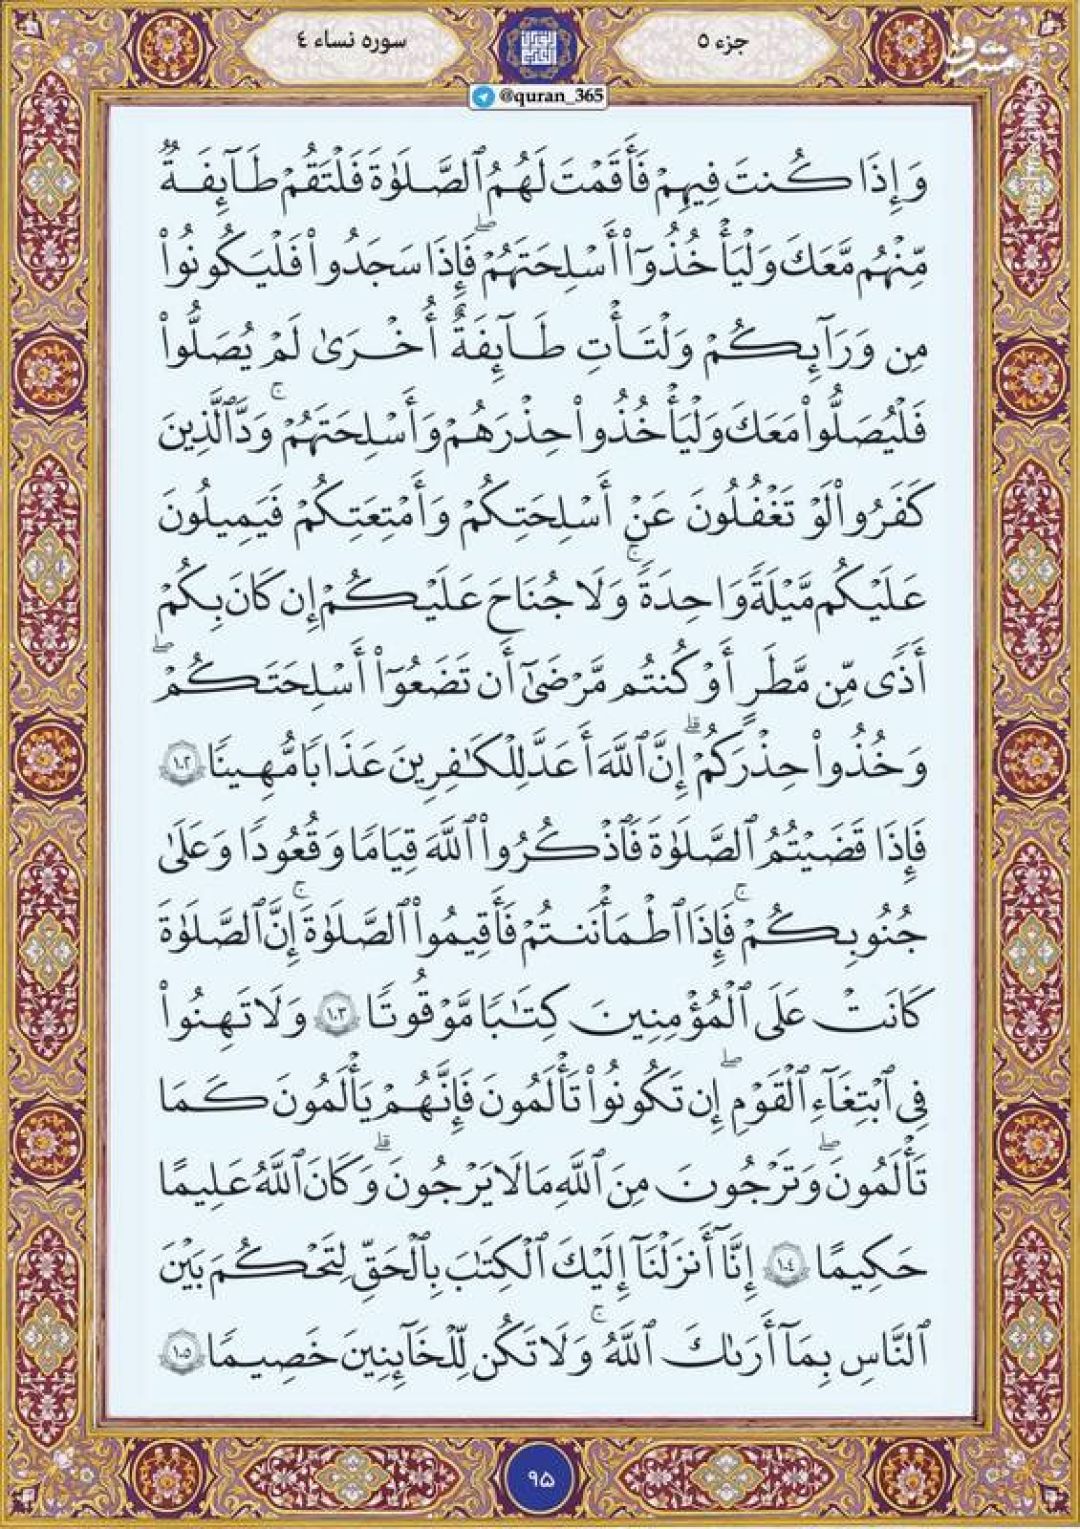 جزء ۵
سوره نساء ٤
مشرق
mashreghnews.ir
@quran_365
وَإِذَا كُنتَ فِيهِمْ فَأَقَمْتَ لَهُمُ ٱلصَّلَوٰةَ فَلْتَقُمْ طَآئِفَةٌ
مِّنْهُم مَّعَكَ وَلْيَأْخُذُوٓا۟ أَسْلِحَتَهُمْ ۖ فَإِذَا سَجَدُوا۟ فَلْيَكُونُوا۟
مِن وَرَآئِكُمْ وَلْتَأْتِ طَآئِفَةٌ أُخْرَىٰ لَمْ يُصَلُّوا۟
فَلْيُصَلُّوا۟ مَعَكَ وَلْيَأْخُذُوا۟ حِذْرَهُمْ وَأَسْلِحَتَهُمْ ۗ وَدَّ ٱلَّذِينَ
كَفَرُوا۟ لَوْ تَغْفُلُونَ عَنْ أَسْلِحَتِكُمْ وَأَمْتِعَتِكُمْ فَيَمِيلُونَ
عَلَيْكُم مَّيْلَةً وَٰحِدَةً ۚ وَلَا جُنَاحَ عَلَيْكُمْ إِن كَانَ بِكُمْ
أَذًى مِّن مَّطَرٍ أَوْ كُنتُم مَّرْضَىٰٓ أَن تَضَعُوٓا۟ أَسْلِحَتَكُمْ ۖ
وَخُذُوا۟ حِذْرَكُمْ ۗ إِنَّ ٱللَّهَ أَعَدَّ لِلْكَٰفِرِينَ عَذَابًا مُّهِينًا ١٠٢
فَإِذَا قَضَيْتُمُ ٱلصَّلَوٰةَ فَٱذْكُرُوا۟ ٱللَّهَ قِيَامًا وَقُعُودًا وَعَلَىٰ
جُنُوبِكُمْ ۚ فَإِذَا ٱطْمَأْنَنتُمْ فَأَقِيمُوا۟ ٱلصَّلَوٰةَ ۚ إِنَّ ٱلصَّلَوٰةَ
كَانَتْ عَلَى ٱلْمُؤْمِنِينَ كِتَٰبًا مَّوْقُوتًا ١٠٣ وَلَا تَهِنُوا۟
فِى ٱبْتِغَآءِ ٱلْقَوْمِ ۖ إِن تَكُونُوا۟ تَأْلَمُونَ فَإِنَّهُمْ يَأْلَمُونَ كَمَا
تَأْلَمُونَ ۖ وَتَرْجُونَ مِنَ ٱللَّهِ مَا لَا يَرْجُونَ ۗ وَكَانَ ٱللَّهُ عَلِيمًا
حَكِيمًا ١٠٤ إِنَّآ أَنزَلْنَآ إِلَيْكَ ٱلْكِتَٰبَ بِٱلْحَقِّ لِتَحْكُمَ بَيْنَ
ٱلنَّاسِ بِمَآ أَرَىٰكَ ٱللَّهُ ۚ وَلَا تَكُن لِّلْخَآئِنِينَ خَصِيمًا ١٠٥
۹۵